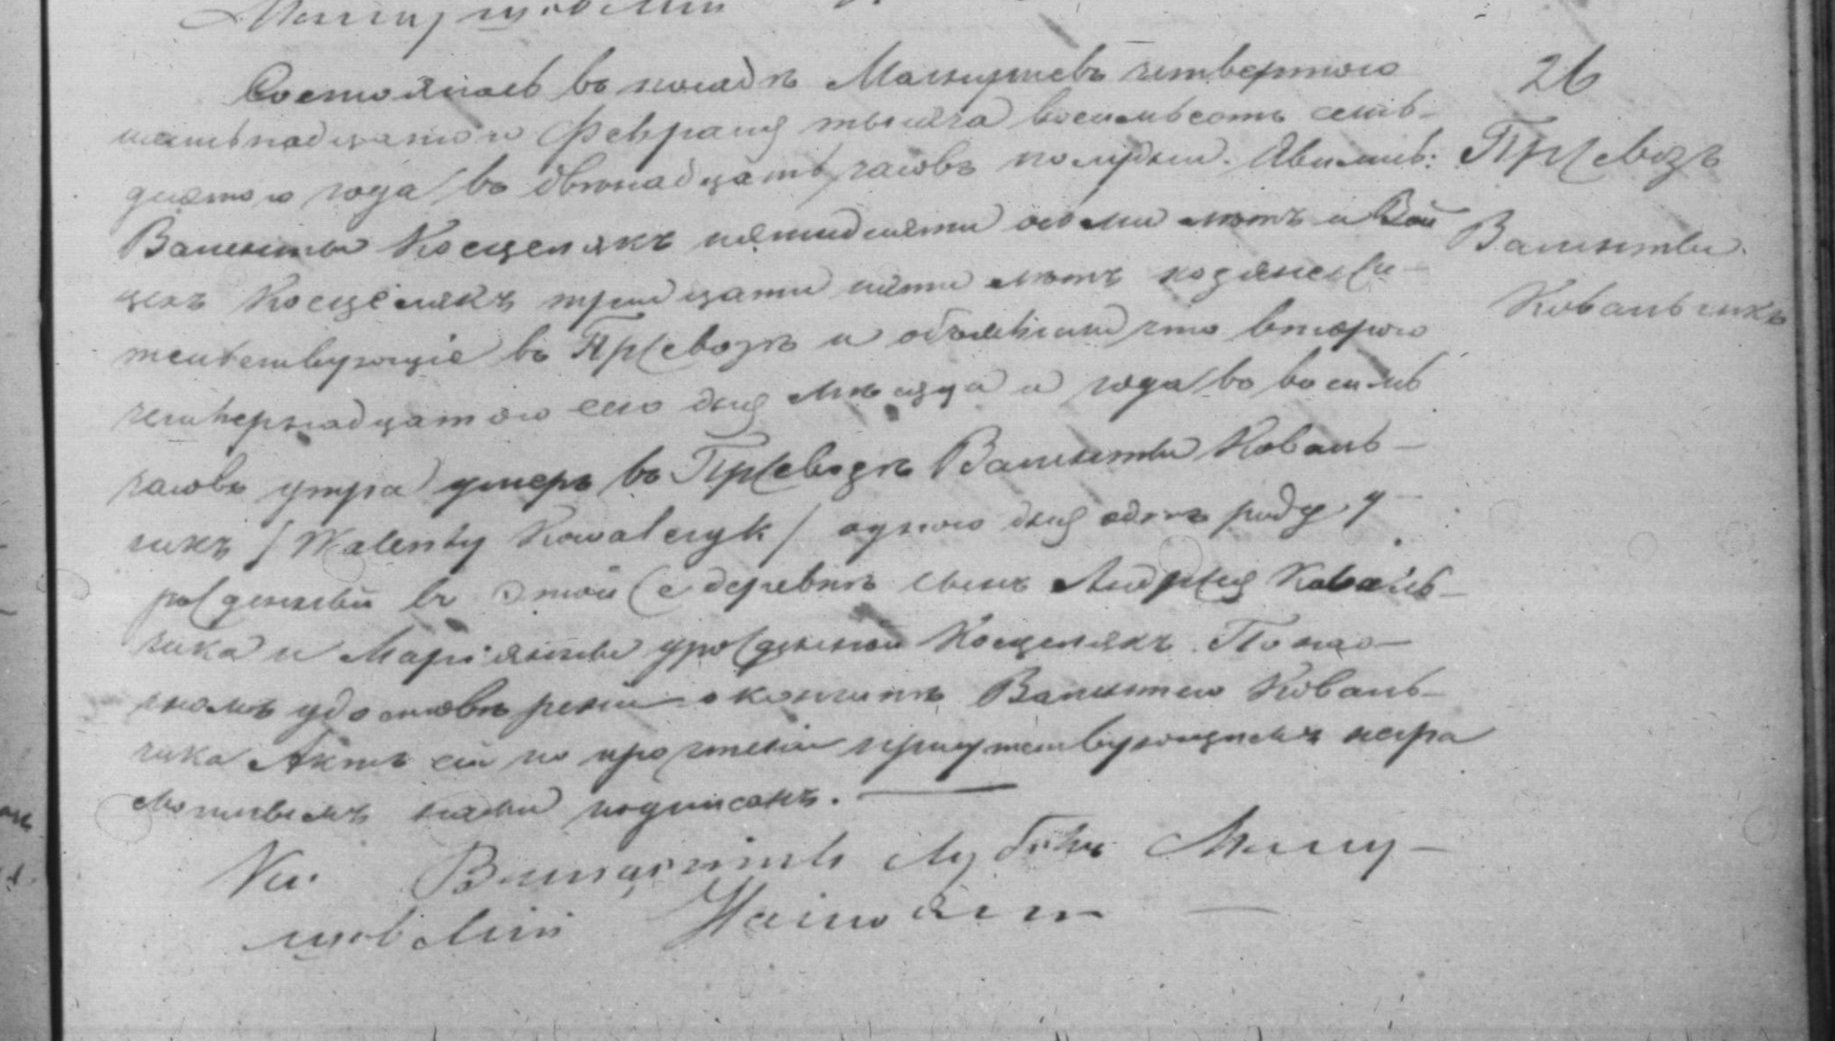 26
Пржевозъ
Валенты
Ковальчикъ
Состоялось въ посадѣ Макушевъ четвертого
шестьнадцатого Февраля тысяча восемьсотъ семь-
десятого года въ двѣнадцать часовъ полудни. Явились:
Валенты Косцелякъ пятидесяти осьми лѣтъ и Вой
цехъ Косцелякъ тридцати пяти лѣтъ хозяне жи-
тельствующіе въ Пржевозѣ и объявили что второго
четырнадцатого сего дня мѣсяца и года въ восемь
часовъ утра умеръ въ Пржевозѣ Валенты Коваль-
чикъ /Walenty Kowalczyk/ одного дня отъ роду у
рожденный въ этой же деревнѣ сынъ Андржея Коваль-
чика и Маріянны урожденной Косцелякъ. По нао-
чномъ удостовѣреніи о кончинѣ Валентего Коваль-
чика Актъ сей по прочтеніи присутствующимъ негра
мотнымъ нами подписанъ.
Кс.